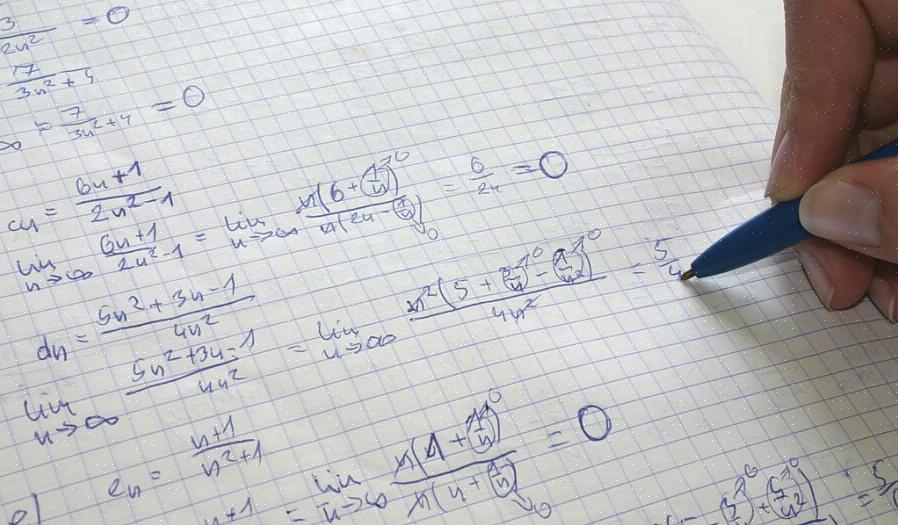 3/2n² = 0
7/3n²+4
∞ = 7/3n²+4 = 0
cn = 6n+1/2n²-1
lim n→∞ 6n+1/2n²-1 = lim n→∞ n(6+(1/n)→0)/n(2n-(1/n)→0) = 6/2n = 0
dn = 5n²+3n-1/4n²
lim n→∞ 5n²+3n-1/4n² = lim n→∞ n²(5+(3/n)→0-(1/n²)→0)/4n² = 5/4
en = n+1/n²+1
n+1 = lim n→∞ n(1+(1/n)→0)/n(n+(1/n)→0) = 0